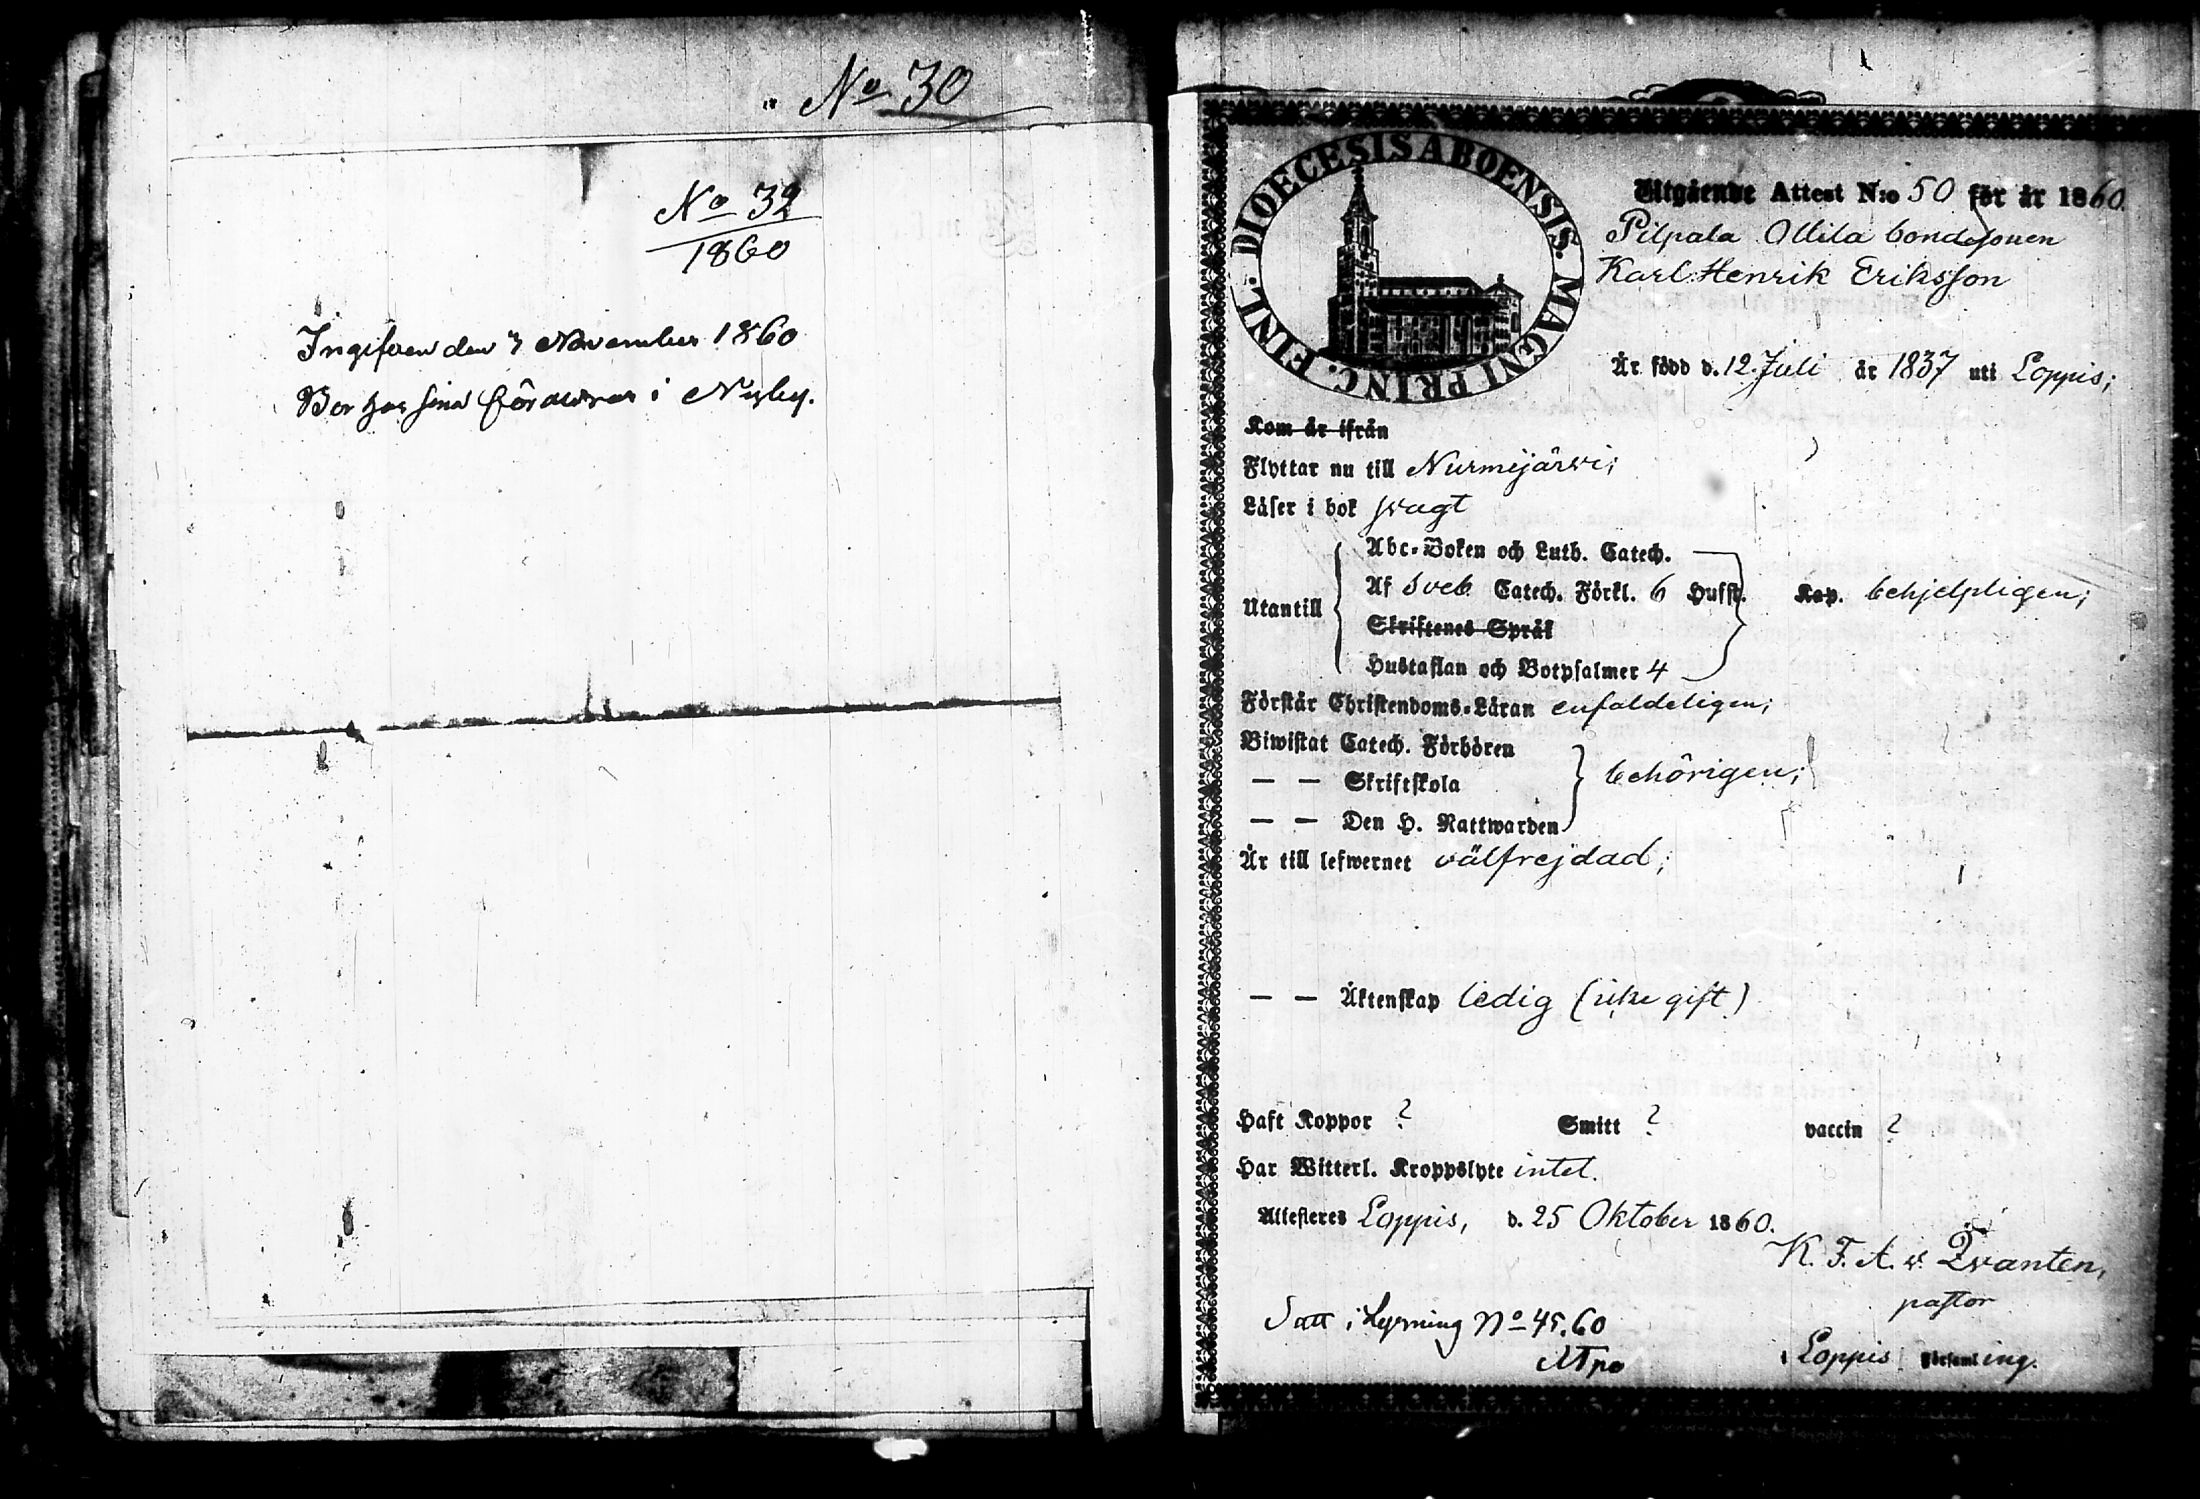 No 30
No 32
1860
Ingifven den 7 November 1860
Bor hos sina föräldrar i Nyby.
DIOECESIS ABOENSIS. MAGNI PRINC. FINL.
Utgående Attest N:o 50 för år 1860.
Pilpala Ollila bondesonen
Karl Henrik Eriksson
Är född d. 12. Juli år 1837 uti Loppis;
Kom år ifrån
Flyttar nu till Nurmijärvi;
Läser i bok svagt
Utantill
Abc-Boken och Luth. Catech.
Af Sveb. Catech. Förkl. 6 Hufst. Kap. behjelpligen;
Skriftenes Språk
Hustaflan och Botpsalmer 4
Förstår Christendoms-Läran enfaldeligen;
Biwistat Catech. Förhören
— — Skriftskola behörigen;
— — Den H. Nattwarden
Är till lefwernet välfrejdad;
— — Äktenskap ledig (icke gift)
Haft Koppor ? Smitt ? vaccin ?
Har Witterl. Kroppslyte intet.
Attesteres Loppis, d. 25 Oktober 1860.
K. F. A. v. Qvanten,
pastor
i Loppis Församling.
No 45.60